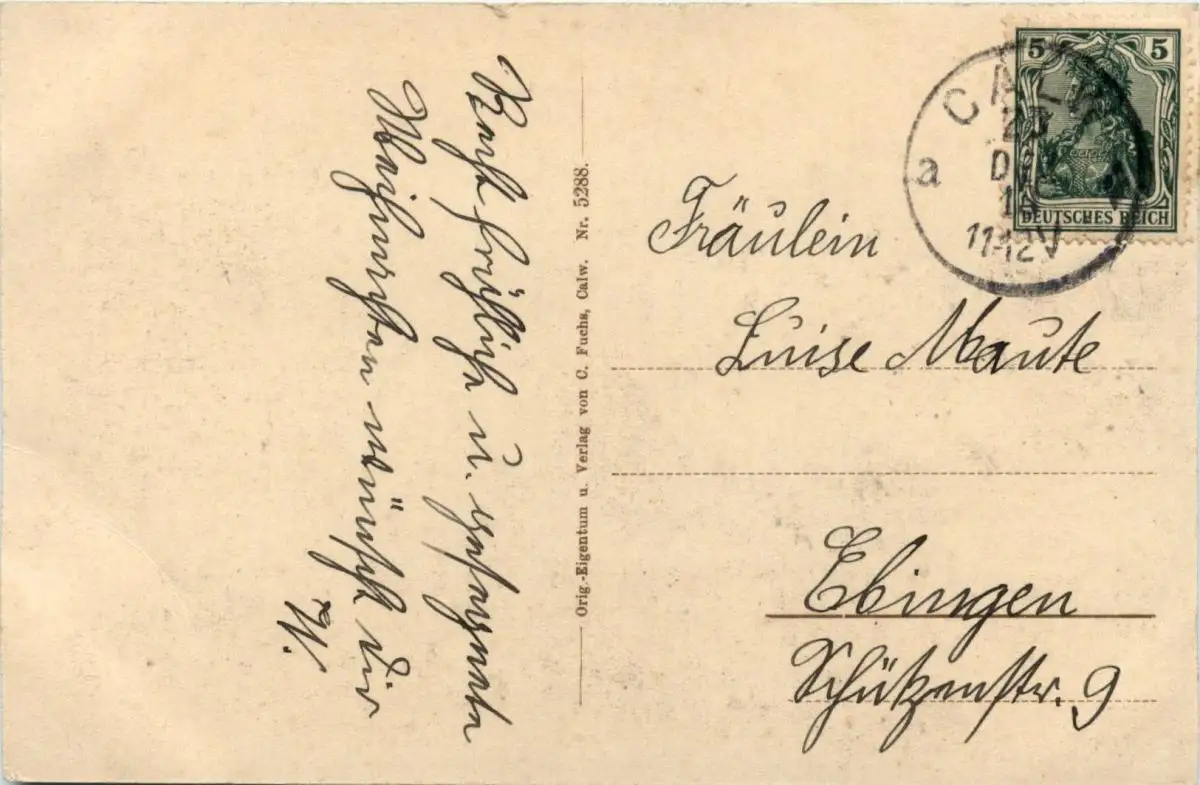 Recht fröhliche u. gesegnete
Weihnachten wünscht dir
W.
Orig.-Eigentum u. Verlag von C. Fuchs, Calw. Nr. 5288.
5 5
DEUTSCHES REICH
CALW
23
DEZ
11-12V
a
Fräulein
Luise Maute
Ebingen
Schützenstr. 9